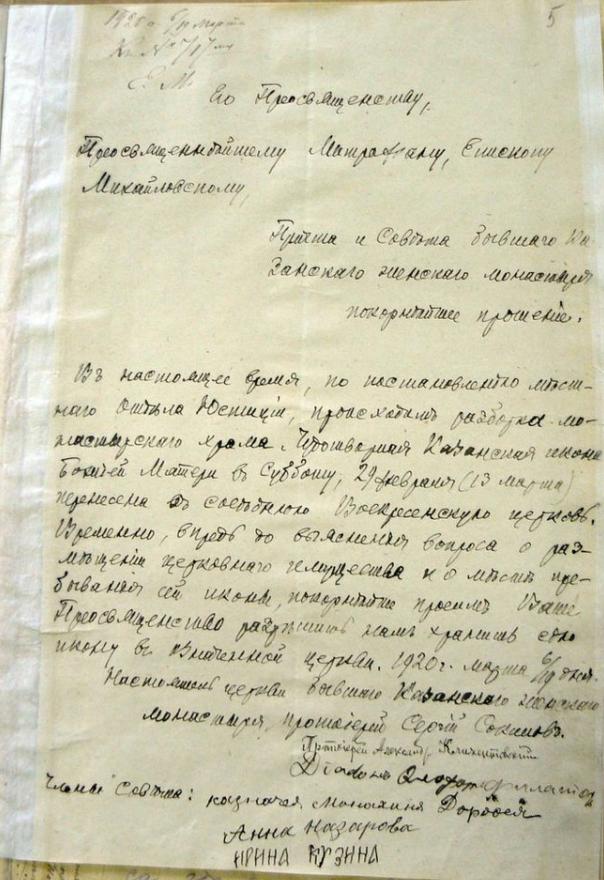 1920 г. 6/19 марта
5
Его Преосвященству,
Преосвященнѣйшему Митрофану, Епископу
Михайловскому,
Причта и Совѣта бывшаго Ка-
занскаго женскаго монастыря
покорнѣйшее прошеніе.
Въ настоящее время, по постановленію мѣст-
наго Отдѣла Юстиціи, происходитъ разборка мо-
настырскаго храма. Чудотворная Казанская икона
Божіей Матери въ Субботу, 29 февраля (13 марта)
перенесена въ сосѣднюю Воскресенскую церковь.
Временно, впредь до выясненія вопроса о раз-
мѣщеніи церковнаго имущества и о мѣстѣ пре-
быванія сей иконы, покорнѣйше просимъ Ваше
Преосвященство разрѣшить намъ хранить сію
икону въ означенной церкви. 1920 г. марта 6/19 дня.
Настоятель церкви бывшаго Казанскаго женскаго
монастыря, протоіерей Сергій Соколовъ.
Протоіерей Александръ
Діаконъ Филатов
Члены Совѣта: казначея монахиня Дорофея
Анна Назарова
ИРИНА КУЗИНА